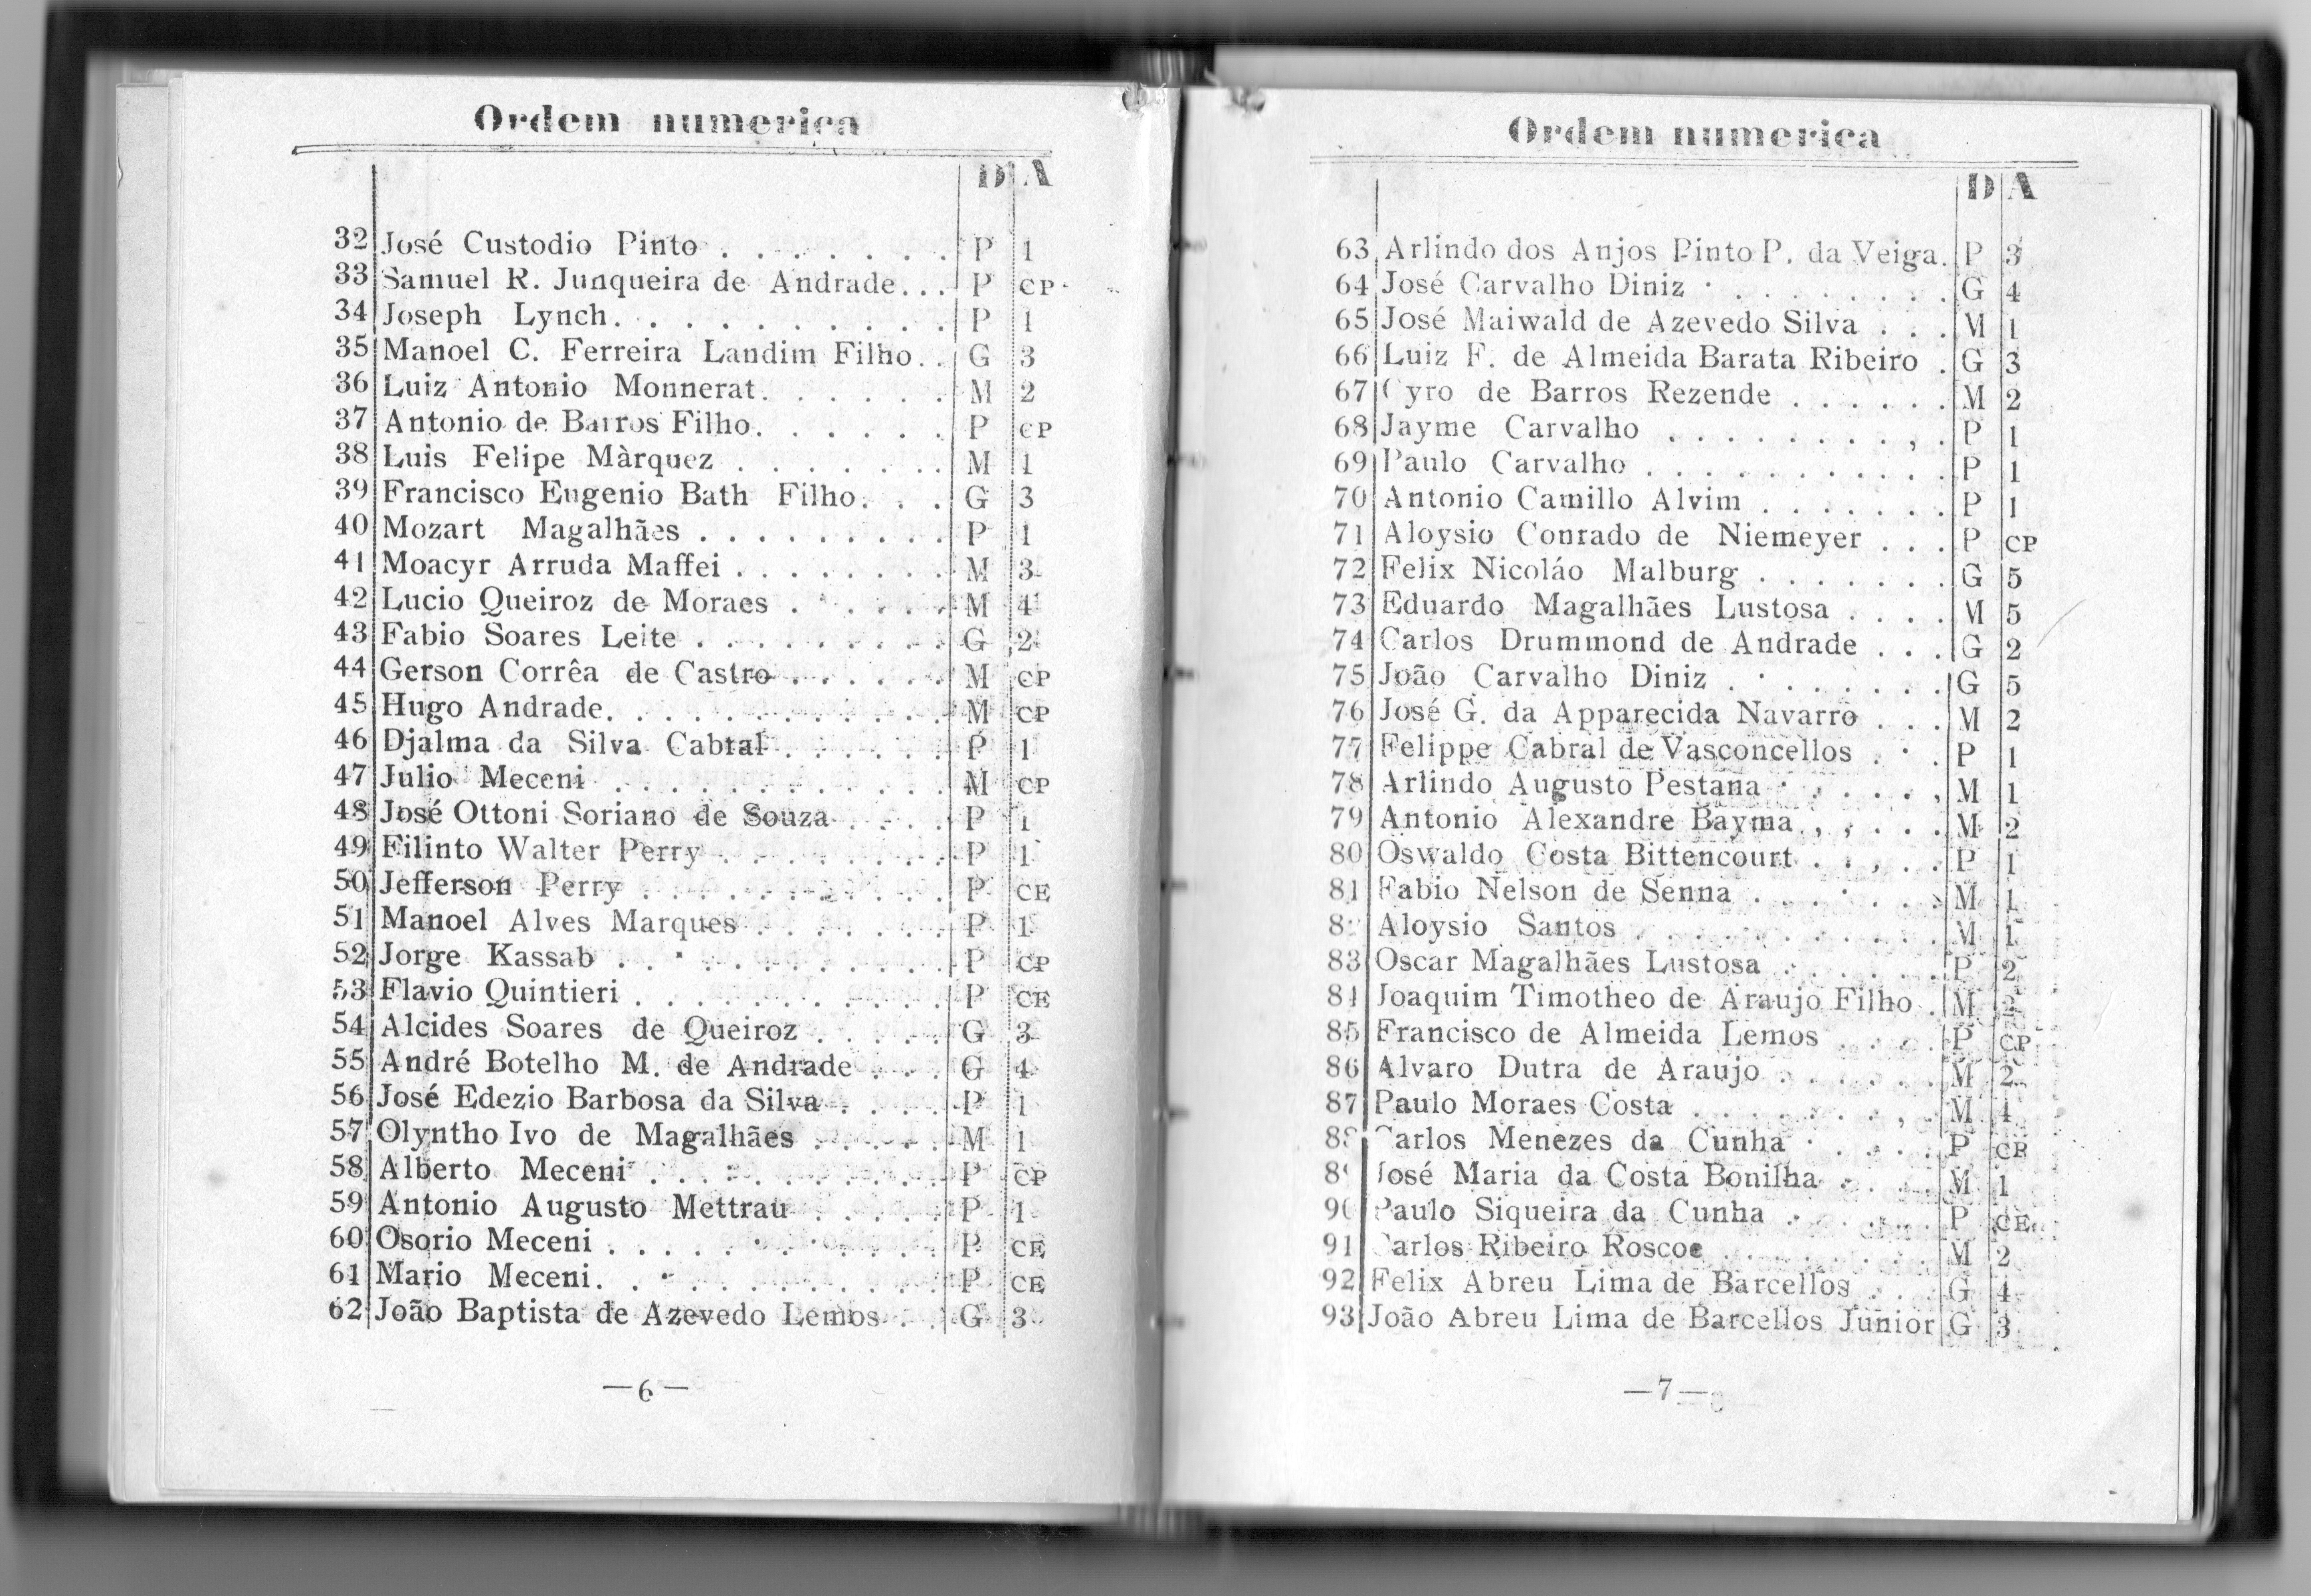 Ordem numerica
D A
32 José Custodio Pinto . . . . . . . . P 1
33 Samuel R. Junqueira de Andrade. . . P CP
34 Joseph Lynch. . . . . . . . . . . P 1
35 Manoel C. Ferreira Landim Filho. . G 3
36 Luiz Antonio Monnerat. . . . . . . M 2
37 Antonio de Barros Filho. . . . . . . P CP
38 Luis Felipe Màrquez . . . . . . . M 1
39 Francisco Eugenio Bath Filho. . . G 3
40 Mozart Magalhães . . . . . . . . . P 1
41 Moacyr Arruda Maffei . . . . . . . . M 3
42 Lucio Queiroz de Moraes . . . . . . M 4
43 Fabio Soares Leite . . . . . . . . . G 2
44 Gerson Corrêa de Castro . . . . . . M CP
45 Hugo Andrade. . . . . . . . . . . . M CP
46 Djalma da Silva Cabral . . . . . . P 1
47 Julio Meceni . . . . . . . . . . . . M CP
48 José Ottoni Soriano de Souza . . . . P 1
49 Filinto Walter Perry . . . . . . . . P 1
50 Jefferson Perry . . . . . . . . . . . P CE
51 Manoel Alves Marques . . . . . . . P 1
52 Jorge Kassab . . . . . . . . . . . P CP
53 Flavio Quintieri . . . . . . . . . . . P CE
54 Alcides Soares de Queiroz . . . . . G 3
55 André Botelho M. de Andrade . . . G 4
56 José Edezio Barbosa da Silva . . . . P 1
57 Olyntho Ivo de Magalhães . . . . . M 1
58 Alberto Meceni . . . . . . . . . . . P CP
59 Antonio Augusto Mettrau . . . . . P 1
60 Osorio Meceni . . . . . . . . . . . . P CE
61 Mario Meceni. . . . . . . . . . . . P CE
62 João Baptista de Azevedo Lemos . . G 3
—6—
Ordem numerica
D A
63 Arlindo dos Anjos Pinto P. da Veiga. P 3
64 José Carvalho Diniz . . . . . . . . . G 4
65 José Maiwald de Azevedo Silva . . . M 1
66 Luiz F. de Almeida Barata Ribeiro . G 3
67 Cyro de Barros Rezende . . . . . . M 2
68 Jayme Carvalho . . . . . . . . , . P 1
69 Paulo Carvalho . . . . . . . . . . . P 1
70 Antonio Camillo Alvim . . . . . . . P 1
71 Aloysio Conrado de Niemeyer . . . P CP
72 Felix Nicoláo Malburg . . . . . . . G 5
73 Eduardo Magalhães Lustosa . . . . M 5
74 Carlos Drummond de Andrade . . . G 2
75 João Carvalho Diniz . . . . . . . . G 5
76 José G. da Apparecida Navarro . . . M 2
77 Felippe Cabral de Vasconcellos . . . P 1
78 Arlindo Augusto Pestana . . . . . , M 1
79 Antonio Alexandre Bayma . , , . . . M 2
80 Oswaldo Costa Bittencourt . . , . . P 1
81 Fabio Nelson de Senna . . . . . . . M 1
82 Aloysio Santos . . . . . . . . . . . M 1
83 Oscar Magalhães Lustosa . . . . . . P 2
84 Joaquim Timotheo de Araujo Filho . M 2
85 Francisco de Almeida Lemos . . . . P CP
86 Alvaro Dutra de Araujo . . . . . . M 2
87 Paulo Moraes Costa . . . . . . . , . M 4
88 Carlos Menezes da Cunha . . . . . P CP
89 José Maria da Costa Bonilha . . . . M 1
90 Paulo Siqueira da Cunha . . . . . . P CE
91 Carlos Ribeiro Roscoe . . . . . . . M 2
92 Felix Abreu Lima de Barcellos . . . G 4
93 João Abreu Lima de Barcellos Junior G 3
—7—